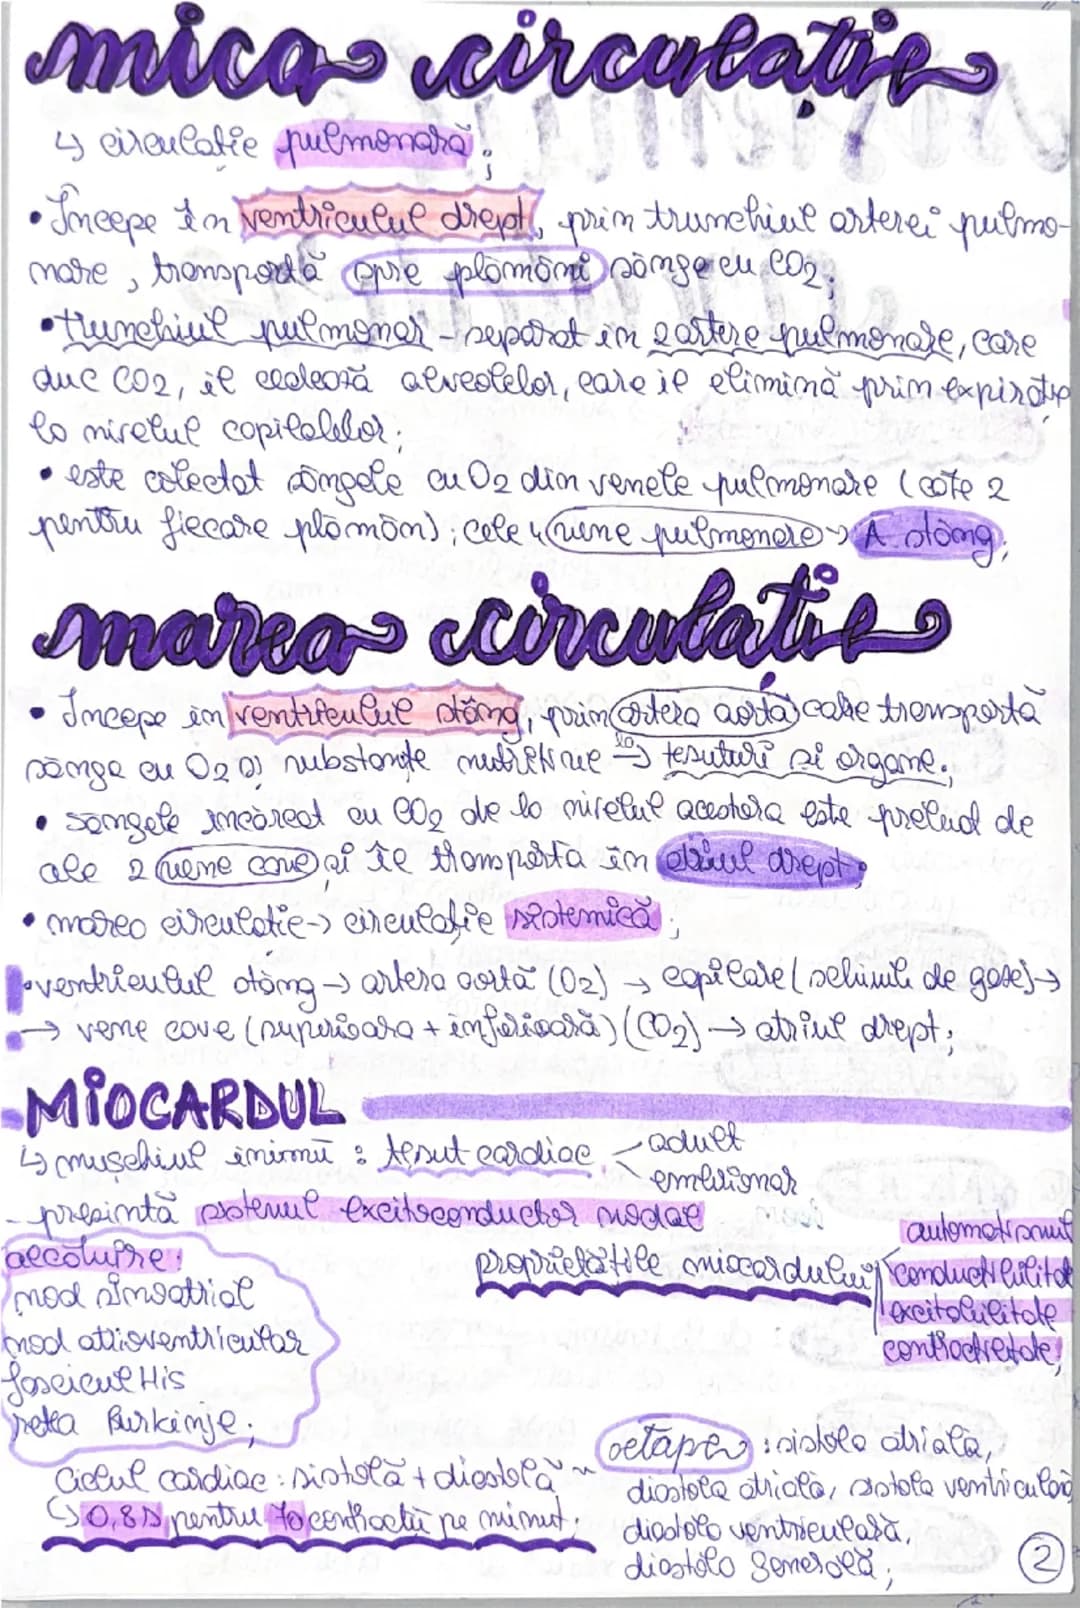 mica circulație
↳ circulație pulmonară;
• Începe în ventriculul drept, prin trunchiul arterei pulmo-
nare, transportă spre plămâni sânge cu CO2;
• trunchiul pulmonar - separat în 2 artere pulmonare, care
duc CO2, îl cedează alveolelor, care îl elimină prin expirație
la nivelul capilalelor;
• este colectat sângele cu O2 din venele pulmonare (câte 2
pentru fiecare plămân); cele 4 vene pulmonare → A. stâng;
marea circulație
• Începe în ventriculul stâng, prin artera aortă care transportă
sânge cu O2 și substanțe nutritive la → țesuturi și organe.
• sângele încărcat cu CO2 de la nivelul acestora este preluat de
cele 2 vene cave și îl transportă în atriul drept;
• marea circulație → circulație sistemică;
• ventriculul stâng → artera aortă (O2) → capilare (schimb de gaze) →
→ vene cave (superioară + inferioară) (CO2) → atriul drept;
MIOCARDUL
↳ mușchiul inimii : țesut cardiac - adult
embrionar
- prezintă sistemul excitoconductor nodal
alcătuire:
nod sinoatrial
nod atrioventricular
fascicul His
rețea Purkinje;
proprietățile miocardului
automatismul
conductibilitate
excitabilitate
contractilitate;
Ciclul cardiac : sistolă + diastolă ~
↳ 0,8 s pentru 70 contracții pe minut;
etape : sistola atrială,
diastola atrială, sistola ventriculară
diastola ventriculară,
diastola generală;
2